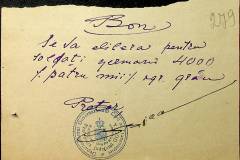 Bon
279
Se va elibera pentru
soldați germani 4000
/. patru mii /. kgr. grâu
Pretor